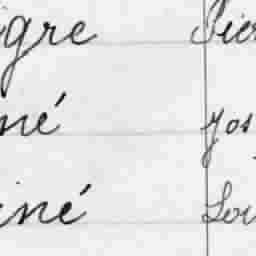 igre Pier
né Jos
iné Lou